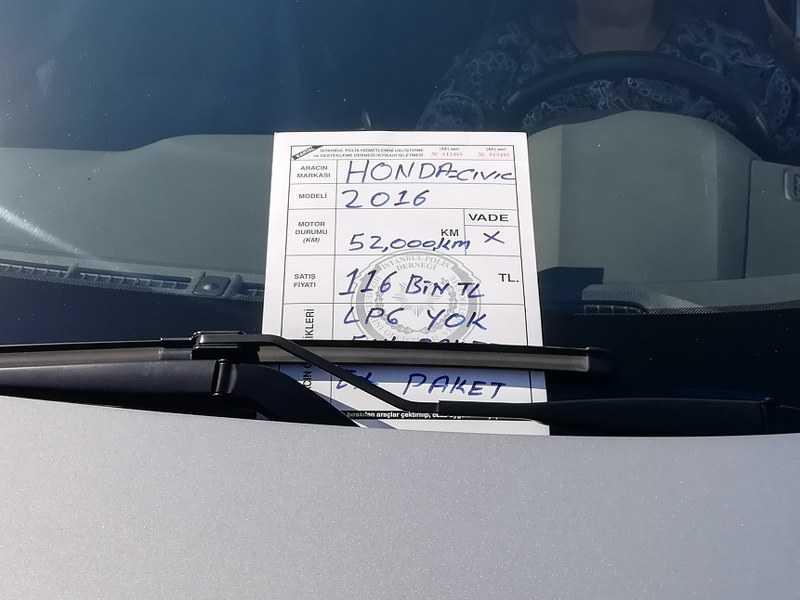 İSTANBUL POLİS HİZMETLERİNİ GELİŞTİRME
ve DESTEKLEME DERNEĞİ İKTİSADİ İŞLETMESİ
ARACIN MARKASI HONDA-CIVIC
MODELİ 2016
MOTOR DURUMU (KM) 52,000,km KM VADE X
SATIŞ FİYATI 116 BİN TL TL.
LPG YOK
PAKET
İSTANBUL POLİS
DERNEĞİ